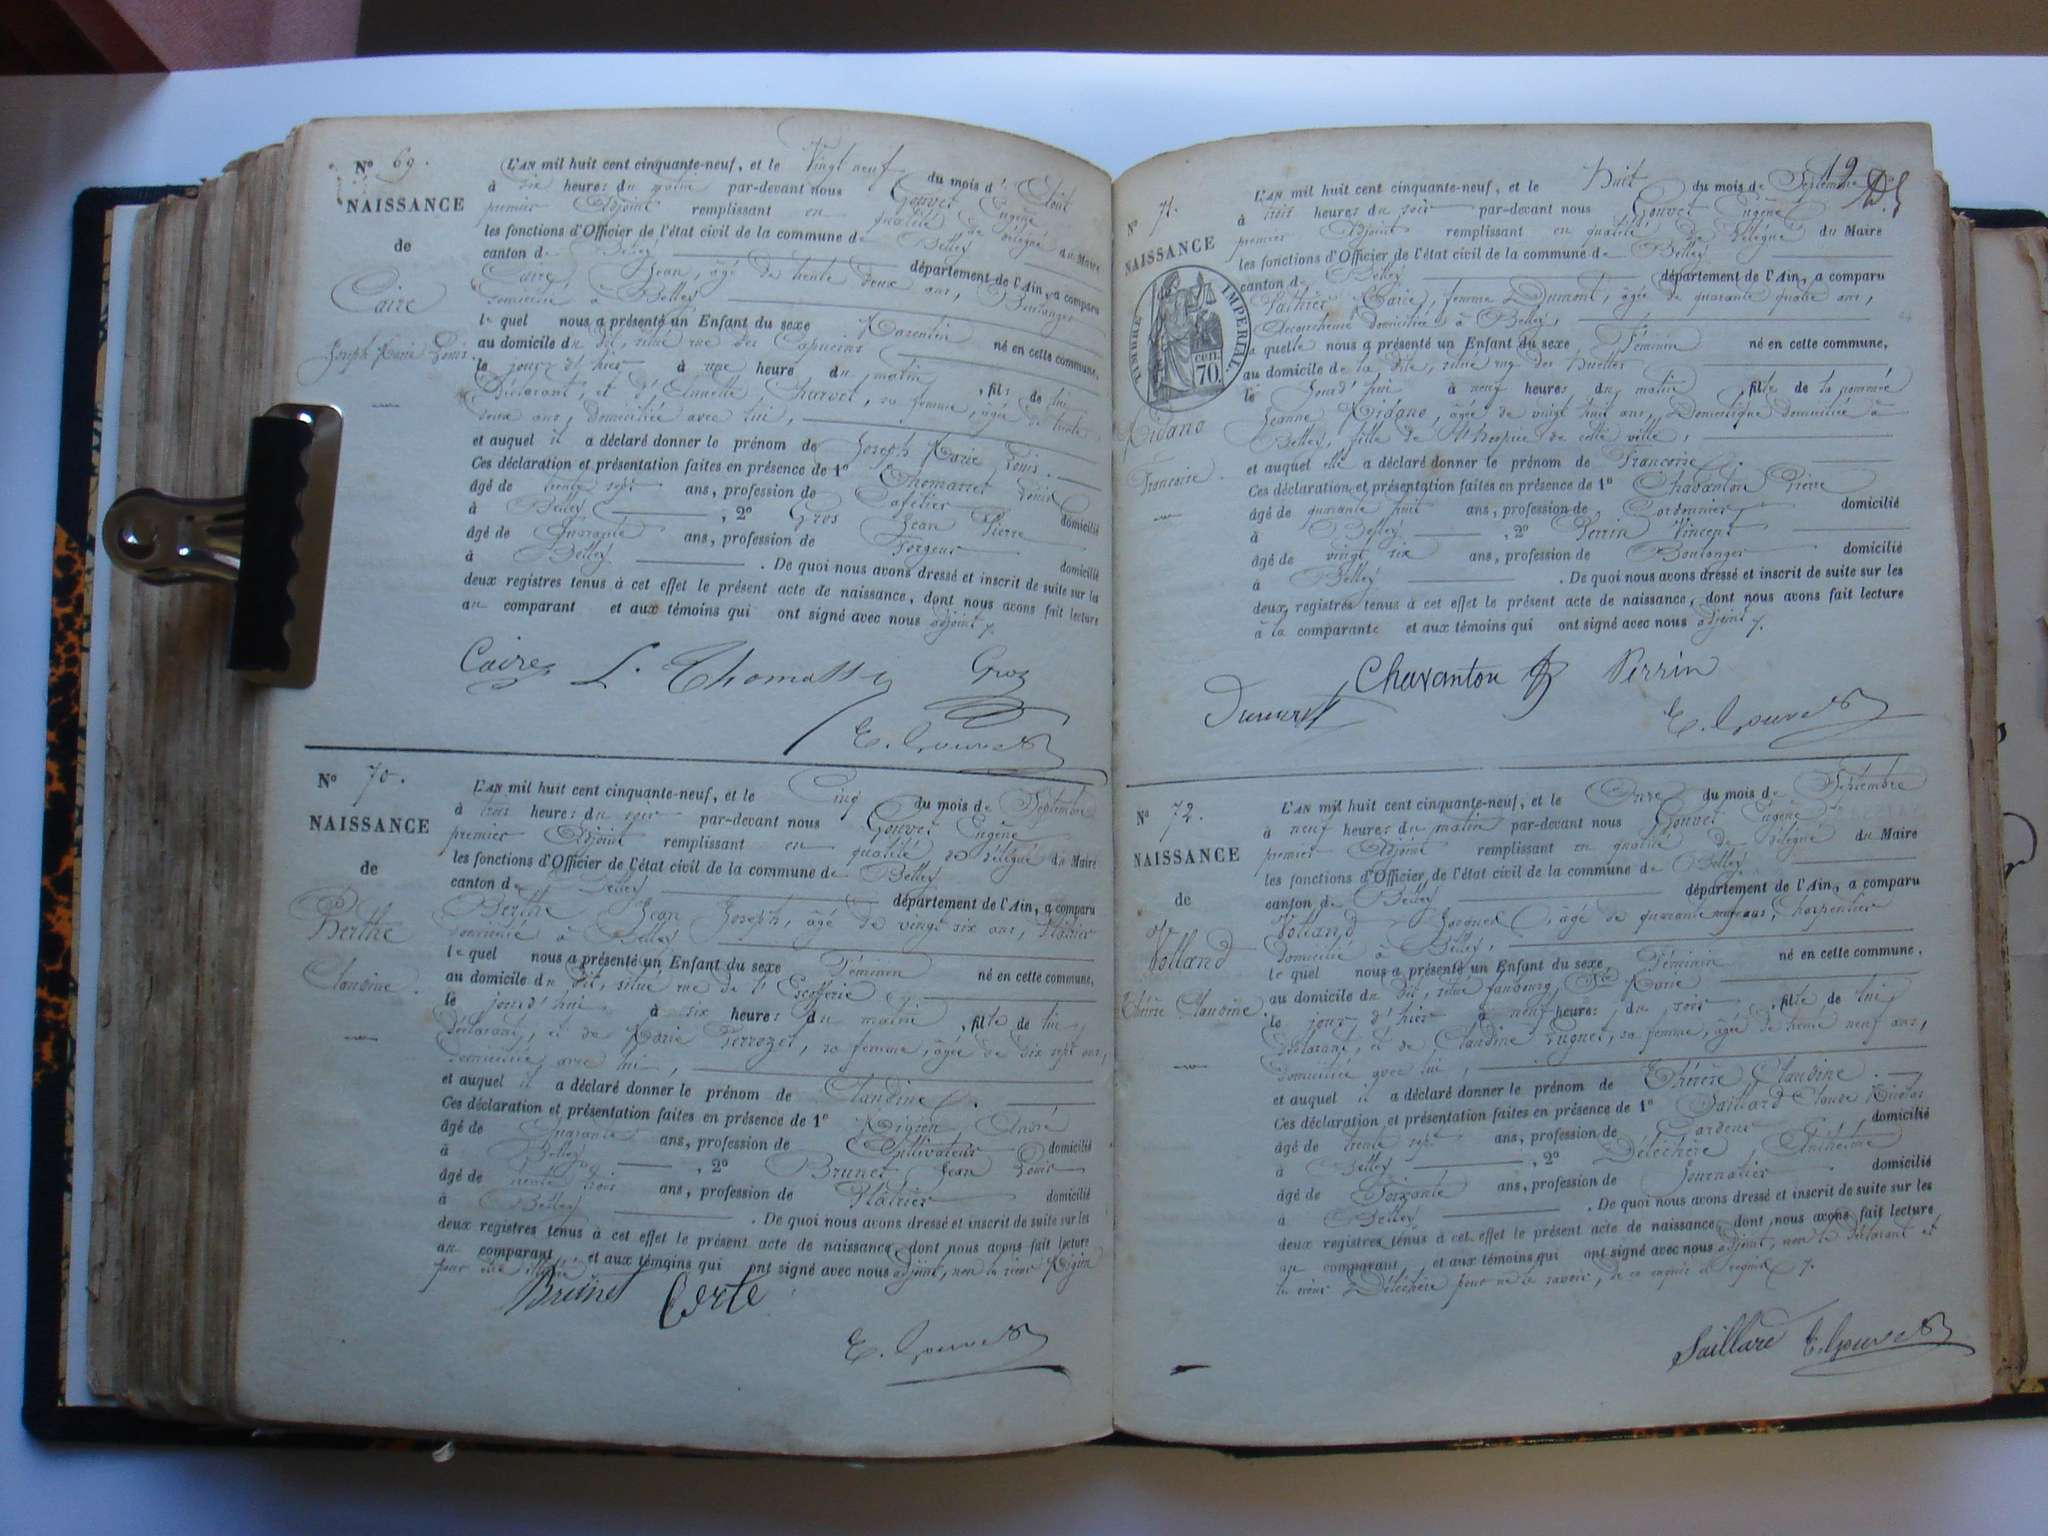 N° 69.
NAISSANCE
de
Caire
Joseph Marie Louis.
L'AN mil huit cent cinquante-neuf, et le Vingt neuf du mois d' Août
à six heures du matin par-devant nous Gouvet Eugène
premier Adjoint remplissant en qualité de délégué du Maire
les fonctions d'Officier de l'état civil de la commune de Belley
canton de Belley département de l'Ain, a comparu
Caire Jean, âgé de trente deux ans, Boulanger
domicilié à Belley
lequel nous a présenté un Enfant du sexe Masculin né en cette commune,
au domicile du dit, situé rue des Capucins
le jour d'hier à une heure du matin, fils de lui
Déclarant, et d' Charvet, sa femme, âgée de trente
deux ans, domiciliée avec lui,
et auquel il a déclaré donner le prénom de Joseph Marie Louis.
Ces déclaration et présentation faites en présence de 1° Thomasset Louis
âgé de trente sept ans, profession de Cafetier domicilié
à Belley, 2° Gros Jean Pierre
âgé de Quarante ans, profession de Forgeur domicilié
à Belley. De quoi nous avons dressé et inscrit de suite sur les
deux registres tenus à cet effet le présent acte de naissance, dont nous avons fait lecture
au comparant et aux témoins qui ont signé avec nous adjoint
Caire L. Thomasset Gros
E. Gouvet
N° 70.
NAISSANCE
de
Berthe
Claudine.
L'AN mil huit cent cinquante-neuf, et le Cinq du mois de Septembre
à trois heures du soir par-devant nous Gouvet Eugène
premier Adjoint remplissant en qualité de délégué du Maire
les fonctions d'Officier de l'état civil de la commune de Belley
canton de Belley département de l'Ain, a comparu
Berthe Jean Joseph, âgé de vingt six ans, Plâtrier
domicilié à Belley
lequel nous a présenté un Enfant du sexe Féminin né en cette commune,
au domicile du dit, situé rue de l'Escofferie
le jourd'hui à six heures du matin, fille de lui
déclarant, et de Marie Perrozet, sa femme, âgée de dix sept ans,
domiciliée avec lui,
et auquel il a déclaré donner le prénom de Claudine.
Ces déclaration et présentation faites en présence de 1° André
âgé de Quarante ans, profession de Cultivateur domicilié
à Belley, 2° Brunet Jean Louis
âgé de trente trois ans, profession de Plâtrier domicilié
à Belley. De quoi nous avons dressé et inscrit de suite sur les
deux registres tenus à cet effet le présent acte de naissance, dont nous avons fait lecture
au comparant et aux témoins qui ont signé avec nous adjoint, non le sieur
pour être illettré
Brunet Berte
E. Gouvet
19
N° 71.
NAISSANCE
TIMBRE IMPÉRIAL
CEN. 70
Midano
Françoise.
L'AN mil huit cent cinquante-neuf, et le Huit du mois de Septembre
à trois heures du soir par-devant nous Gouvet Eugène
premier Adjoint remplissant en qualité de délégué du Maire
les fonctions d'Officier de l'état civil de la commune de Belley
canton de Belley département de l'Ain, a comparu
Marie, femme Dumont, âgée de quarante quatre ans,
domiciliée à Belley,
laquelle nous a présenté un Enfant du sexe Féminin né en cette commune,
au domicile de la dite, situé rue des
le Jourd'hui à neuf heures du matin, fille de la nommée
Jeanne Midano, âgée de vingt huit ans, Domestique domiciliée à
Belley, fille de l'hospice de cette ville,
et auquel elle a déclaré donner le prénom de Françoise.
Ces déclaration et présentation faites en présence de 1° Chavanton Pierre
âgé de quarante huit ans, profession de Cordonnier domicilié
à Belley, 2° Perrin Vincent
âgé de vingt six ans, profession de Boulanger domicilié
à Belley. De quoi nous avons dressé et inscrit de suite sur les
deux registres tenus à cet effet le présent acte de naissance, dont nous avons fait lecture
à la comparante et aux témoins qui ont signé avec nous adjoint
Chavanton Perrin
E. Gouvet
N° 72.
NAISSANCE
de
Volland
Thérèse Claudine.
L'AN mil huit cent cinquante-neuf, et le Onze du mois de Septembre
à neuf heures du matin par-devant nous Gouvet Eugène
premier Adjoint remplissant en qualité de délégué du Maire
les fonctions d'Officier de l'état civil de la commune de Belley
canton de Belley département de l'Ain, a comparu
Volland Jacques, âgé de quarante ans, Charpentier
domicilié à Belley,
lequel nous a présenté un Enfant du sexe Féminin né en cette commune,
au domicile du dit, situé faubourg Ste Marie
le jour d'hier à neuf heures du soir, fille de lui
déclarant, et de Claudine Pugnet, sa femme, âgée de trente neuf ans,
domiciliée avec lui,
et auquel il a déclaré donner le prénom de Thérèse Claudine.
Ces déclaration et présentation faites en présence de 1° Saillard Claude Nicolas
âgé de trente sept ans, profession de Cardeur domicilié
à Belley, 2° Délechère Anthelme
âgé de Soixante ans, profession de Journalier domicilié
à Belley. De quoi nous avons dressé et inscrit de suite sur les
deux registres tenus à cet effet le présent acte de naissance, dont nous avons fait lecture
au comparant et aux témoins qui ont signé avec nous adjoint, non le déclarant et
le sieur Délechère pour ne le savoir, de ce enquis et requis
Saillard E. Gouvet